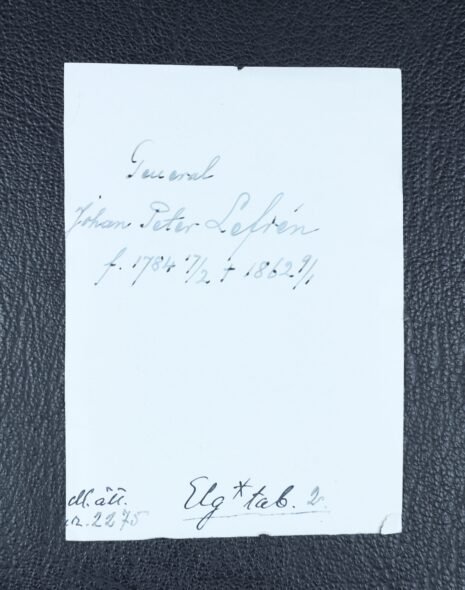 General
Johan Peter Lefrén
f. 1784 7/2 † 1862 9/1
Ad. ätt.
nr. 2275
Elg * tab. 2.